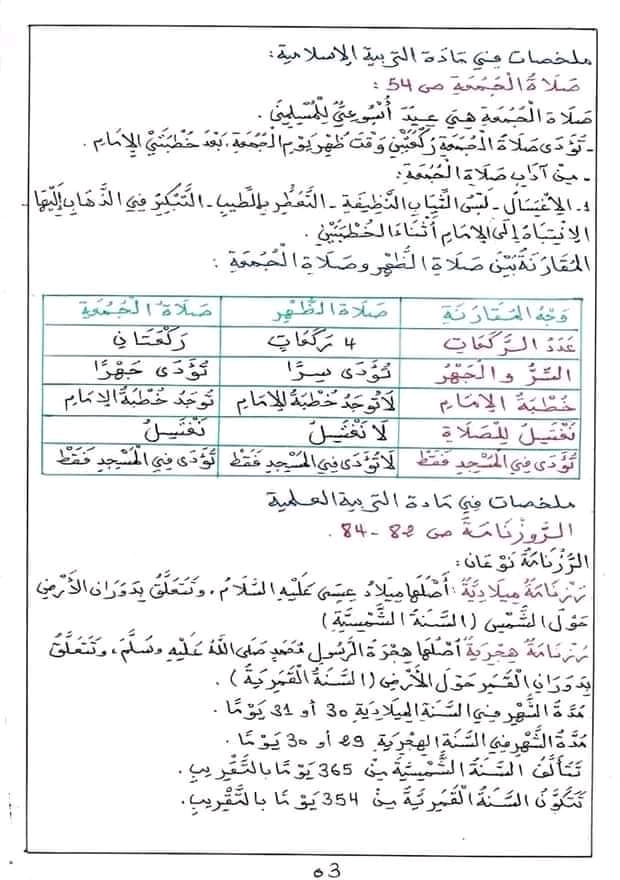 ملخصات في مادة التربية الإسلامية:
صَلَاةُ الْجُمُعَةِ ص 54:
صَلَاةُ الْجُمُعَةِ هِيَ عِيدٌ أُسْبُوعِيٌّ لِلْمُسْلِمِينَ.
- تُؤَدَّى صَلَاةُ الْجُمُعَةِ رَكْعَتَيْنِ وَقْتَ ظُهْرِ يَوْمِ الْجُمُعَةِ، بَعْدَ خُطْبَتَيْ الْإِمَامِ.
- مِنْ آدَابِ صَلَاةِ الْجُمُعَةِ:
1- الِاغْتِسَالُ - لُبْسُ الثِّيَابِ النَّظِيفَةِ - التَّعَطُّرِ بِالطِّيبِ - التَّبْكِيرُ فِي الذَّهَابِ إِلَيْهَا -
الِانْتِبَاهُ إِلَى الْإِمَامِ أَثْنَاءَ الْخُطْبَتَيْنِ.
الْمُقَارَنَةُ بَيْنَ صَلَاةِ الظُّهْرِ وَصَلَاةِ الْجُمُعَةِ:
وَجْهُ الْمُقَارَنَةِ صَلَاةُ الظُّهْرِ صَلَاةُ الْجُمُعَةِ
عَدَدُ الرَّكَعَاتِ 4 رَكَعَاتٍ رَكْعَتَانِ
السِّرُّ وَالْجَهْرُ تُؤَدَّى سِرًّا تُؤَدَّى جَهْرًا
خُطْبَةُ الْإِمَامِ لَا تُوجَدُ خُطْبَةُ الْإِمَامِ تُوجَدُ خُطْبَةُ الْإِمَامِ
نَغْتَسِلُ لِلصَّلَاةِ لَا نَغْتَسِلُ نَغْتَسِلُ
تُؤَدَّى فِي الْمَسْجِدِ فَقَطْ لَا تُؤَدَّى فِي الْمَسْجِدِ فَقَطْ تُؤَدَّى فِي الْمَسْجِدِ فَقَطْ
ملخصات في مادة التربية العلمية
الرُّوزْنَامَةُ ص 82-84.
الرُّزْنَامَةُ نَوْعَانِ:
رُزْنَامَةٌ مِيلَادِيَّةٌ: أَصْلُهَا مِيلَادُ عِيسَى عَلَيْهِ السَّلَامُ، وَتَتَعَلَّقُ بِدَوَرَانِ الْأَرْضِ
حَوْلَ الشَّمْسِ (السَّنَةُ الشَّمْسِيَّةُ)
رُزْنَامَةٌ هِجْرِيَّةٌ أَصْلُهَا هِجْرَةُ الرَّسُولِ مُحَمَّدٍ صَلَّى اللَّهُ عَلَيْهِ وَسَلَّمَ، وَتَتَعَلَّقُ
بِدَوَرَانِ الْقَمَرِ حَوْلَ الْأَرْضِ (السَّنَةُ الْقَمَرِيَّةُ).
مُدَّةُ الشَّهْرِ فِي السَّنَةِ الْمِيلَادِيَّةِ 30 أو 31 يَوْمًا.
مُدَّةُ الشَّهْرِ فِي السَّنَةِ الْهِجْرِيَّةِ 29 أو 30 يَوْمًا.
تَتَأَلَّفُ السَّنَةُ الشَّمْسِيَّةُ مِنْ 365 يَوْمًا بِالتَّقْرِيبِ.
تَتَكَوَّنُ السَّنَةُ الْقَمَرِيَّةُ مِنْ 354 يَوْمًا بِالتَّقْرِيبِ.
03